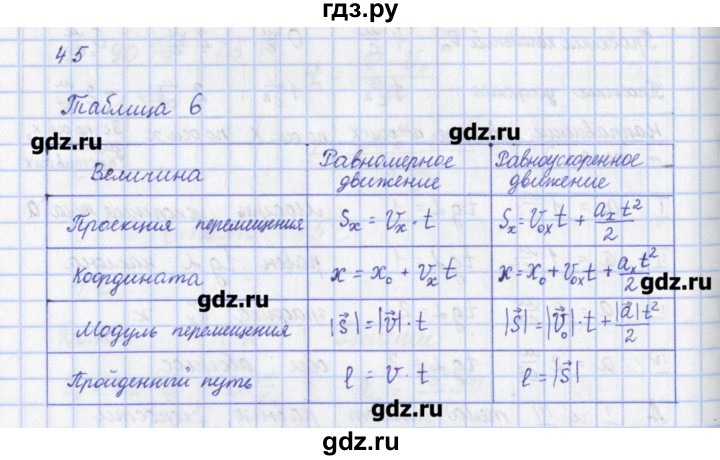 гдз.ру
45
Таблица 6
gdz.ru
gdz.ru
Величина
Равномерное движение
Равноускоренное движение
Проекция перемещения
Sx = Vx · t
Sx = V0x t + ax t²/2
Координата
x = x0 + Vx t
x = x0 + V0x t + ax t²/2
gdz.ru
gdz.ru
Модуль перемещения
|s⃗| = |v⃗| · t
|s⃗| = |v⃗0| · t + |a⃗| t²/2
Пройденный путь
ℓ = v · t
ℓ = |s⃗|
gdz.ru
gdz.ru